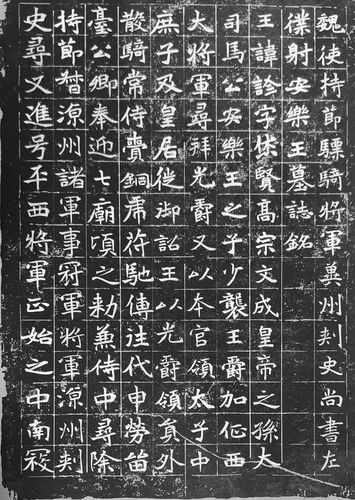 魏使持節驃騎將軍冀州刺史尚書左
僕射安樂王墓誌銘
王諱詮字休賢高宗文成皇帝之孫大
司馬公安樂王之子少襲王爵加征西
大將軍尋拜光爵又以本官領太子中
庶子及皇居徙御詔王以光爵領員外
散騎常侍賫銅虎苻馳傳往代申勞留
臺公卿奉迎七廟頃之敕兼侍中尋除
持節督涼州諸軍事冠軍將軍涼州刺
史尋又進号平西將軍正始之中南寇